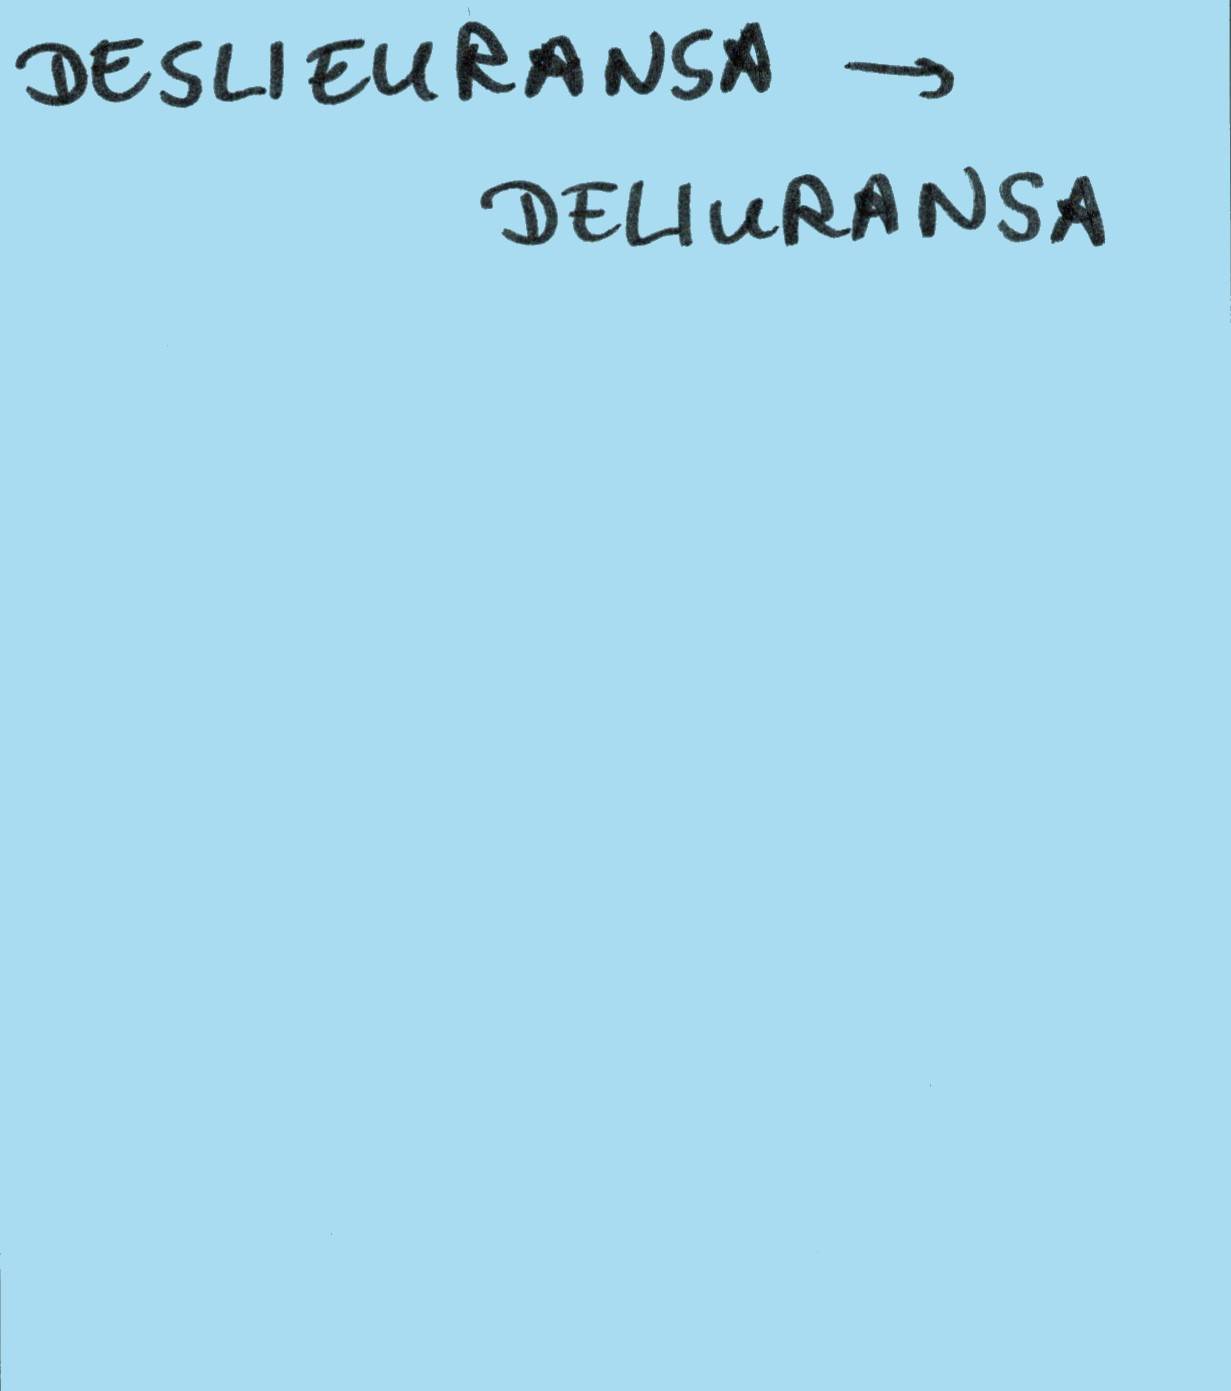 DESLIEURANSA →
DELIURANSA